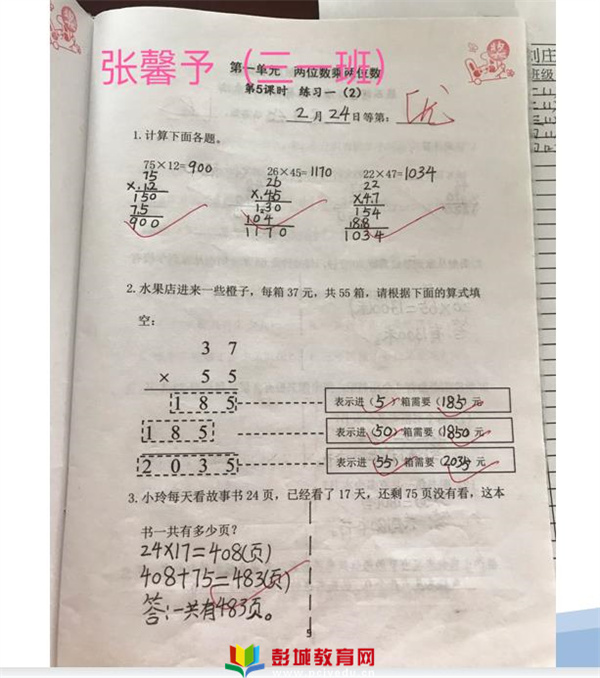 张馨予（三一班）
第一单元 两位数乘两位数
第5课时 练习一（2）
2月24日等第：优
1.计算下面各题。
75×12=900 26×45=1170 22×47=1034
75 26 22
×.12 ×.45 ×4.7
150 130 154
75 104 88
900 1170 1034
2.水果店进来一些橙子，每箱37元，共55箱，请根据下面的算式填
空：
3 7
× 5 5
1 8 5 表示进（5）箱需要（185）元
1 8 5 表示进（50）箱需要（1850）元
2 0 3 5 表示进（55）箱需要（2035）元
3.小玲每天看故事书24页，已经看了17天，还剩75页没有看，这本
书一共有多少页？
24×17=408(页)
408+75=483(页)
答：一共有483页。
5
彭城教育网
刘庄
班级